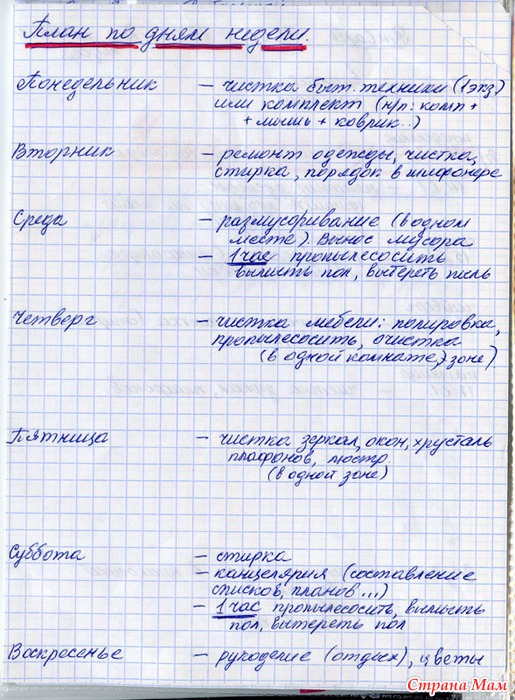 План по дням недели.
Понедельник — чистка быт. техники (1 экз)
или комплект (н/п: комп +
+ мышь + коврик..)
Вторник — ремонт одежды, чистка,
стирка, порядок в шифонере
Среда — размусоривание (в одном
месте). Вынос мусора
— 1 час пропылесосить
вымыть пол, вытереть пыль
Четверг — чистка мебели: полировка,
пропылесосить, очистка
(в одной комнате, зоне)
Пятница — чистка зеркал, окон, хрусталь
плафонов, люстр
(в одной зоне)
Суббота — стирка
— канцелярия (составление
списков, планов...)
— 1 час пропылесосить, вымыть
пол, вытереть пол
Воскресенье — рукоделие (отдых), цветы
Страна Мам